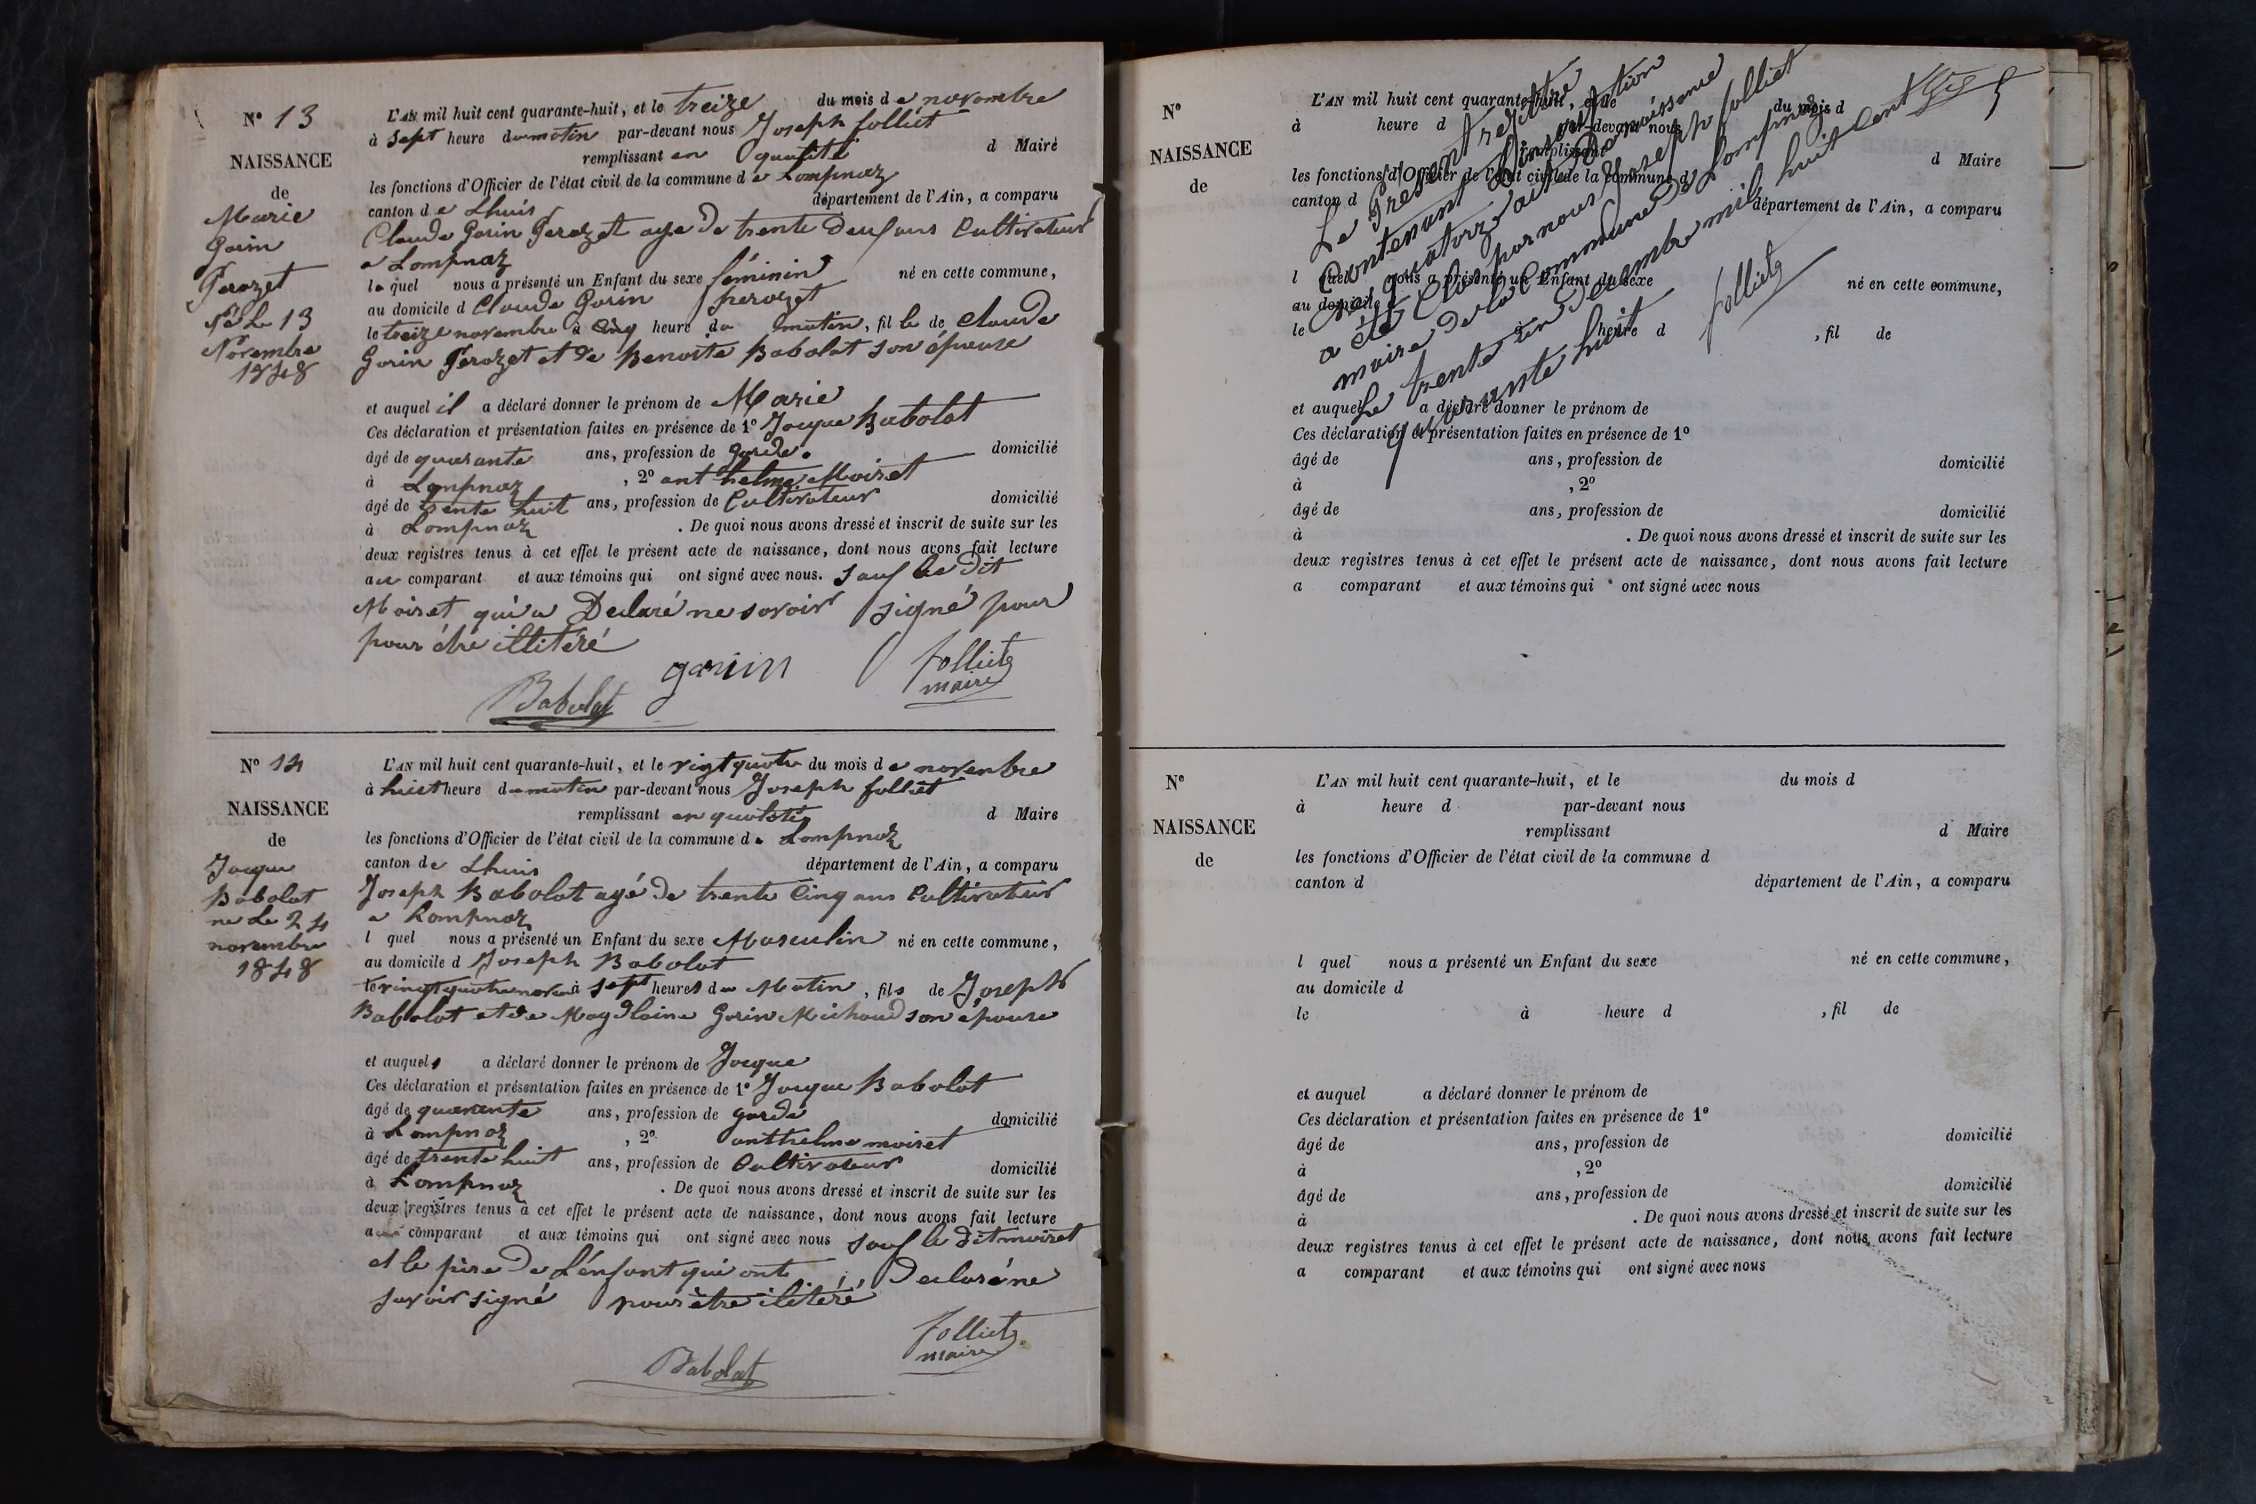 N° 13
NAISSANCE
de
Marie
Gorin
Perozet
Né Le 13
Novembre
1848
L'AN mil huit cent quarante-huit, et le treize du mois de novembre
à sept heure du matin par-devant nous Joseph folliet
remplissant en qualité d Maire
les fonctions d'Officier de l'état civil de la commune de Lompnaz
canton de Lhuis département de l'Ain, a comparu
Claude Gorin Perozet age De trente Deux ans Cultivateur
a Lompnaz
le quel nous a présenté un Enfant du sexe féminin né en cette commune,
au domicile d Claude Gorin perozet
le treize novembre à Cinq heure du matin, fil le de Claude
Gorin Perozet et de Benoite Babolat son épouse
et auquel il a déclaré donner le prénom de Marie
Ces déclaration et présentation faites en présence de 1° Jacque Babolat
âgé de quarante ans, profession de garde. domicilié
à Lompnaz, 2° anthelme Moiret
âgé de trente huit ans, profession de Cultivateur domicilié
à Lompnaz. De quoi nous avons dressé et inscrit de suite sur les
deux registres tenus à cet effet le présent acte de naissance, dont nous avons fait lecture
au comparant et aux témoins qui ont signé avec nous. Sauf le Dit
Moiret qui a Declaré ne savoir signé pour
pour être illitéré
Babolat garin folliet
maire
N° 14
NAISSANCE
de
Jacque
Babolat
né Le 24
novembre
1848
L'AN mil huit cent quarante-huit, et le vingt quatre du mois de novembre
à huit heure du matin par-devant nous Joseph folliet
remplissant en qualité d Maire
les fonctions d'Officier de l'état civil de la commune de Lompnaz
canton de Lhuis département de l'Ain, a comparu
Joseph Babolat agé De trente Cinq ans Cultivateur
a Lompnaz
l quel nous a présenté un Enfant du sexe Masculin né en cette commune,
au domicile d Joseph Babolat
le vingt quatre à sept heures du Matin, fils de Joseph
Babolat et de Magdlaine Gorin Michaud son épouse
et auquel a déclaré donner le prénom de Jacque
Ces déclaration et présentation faites en présence de 1° Jacque Babolat
âgé de quarente ans, profession de garde domicilié
à Lompnaz, 2° anthelme moiret
âgé de trente huit ans, profession de Cultivateur domicilié
à Lompnaz. De quoi nous avons dressé et inscrit de suite sur les
deux registres tenus à cet effet le présent acte de naissance, dont nous avons fait lecture
au comparant et aux témoins qui ont signé avec nous Sauf le Dit moiret
et le père De L'enfant qui ont Declaré ne
savoir signé pour être ilitéré
Babolat folliet
maire
N°
NAISSANCE
de
L'AN mil huit cent quarante-huit, et le du mois d
à heure d par-devant nous
remplissant d Maire
les fonctions d'Officier de l'état civil de la commune d
canton d département de l'Ain, a comparu
l quel nous a présenté un Enfant du sexe né en cette commune,
au domicile d
le à heure d, fil de
et auquel a déclaré donner le prénom de
Ces déclaration et présentation faites en présence de 1°
âgé de ans, profession de domicilié
à, 2°
âgé de ans, profession de domicilié
à. De quoi nous avons dressé et inscrit de suite sur les
deux registres tenus à cet effet le présent acte de naissance, dont nous avons fait lecture
a comparant et aux témoins qui ont signé avec nous
Le Present registre
Contenant L'inscription
de quatorze actes De naissance
a été Clos par nous Joseph folliet
maire de la Commune De Lompnaz
Le trente un Decembre mil huit Cent
quarante huit
folliet
N°
NAISSANCE
de
L'AN mil huit cent quarante-huit, et le du mois d
à heure d par-devant nous
remplissant d Maire
les fonctions d'Officier de l'état civil de la commune d
canton d département de l'Ain, a comparu
l quel nous a présenté un Enfant du sexe né en cette commune,
au domicile d
le à heure d, fil de
et auquel a déclaré donner le prénom de
Ces déclaration et présentation faites en présence de 1°
âgé de ans, profession de domicilié
à, 2°
âgé de ans, profession de domicilié
à. De quoi nous avons dressé et inscrit de suite sur les
deux registres tenus à cet effet le présent acte de naissance, dont nous avons fait lecture
a comparant et aux témoins qui ont signé avec nous